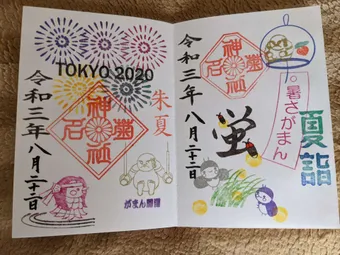 TOKYO 2020
朱夏
菊名神社
令和三年八月二十二日
がまん
夏詣
暑さがまん
菊名神社
螢
令和三年八月二十二日